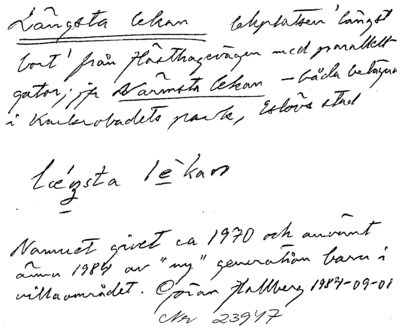 Längsta lekan lekplatsen 'längst
bort' från Hästhagevägen med parallell
gator; jfr Närmsta lekan – båda belägna
i Karlsrobadets park, Eslövs stad
læŋsta lèkan
Namnet givet ca 1970 och använt
ännu 1984 av "ny" generation barn i
villaområdet. Göran Hallberg 1984-09-01
Nr 23947